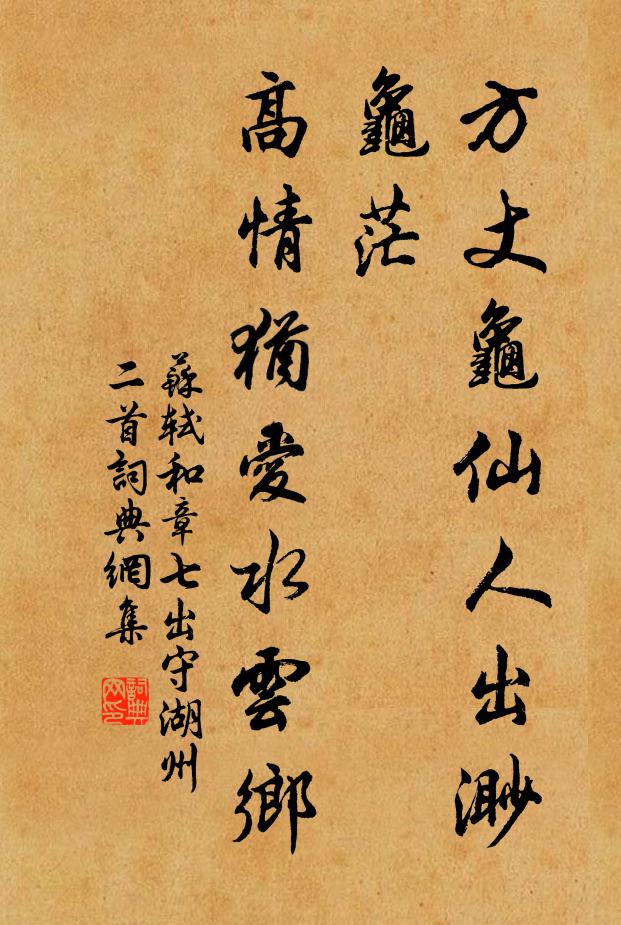 方丈龜仙人出渺
龜茫
高情猶愛水雲鄉
蘇軾和章七出守湖州
二首詞典網集
詞典
网印